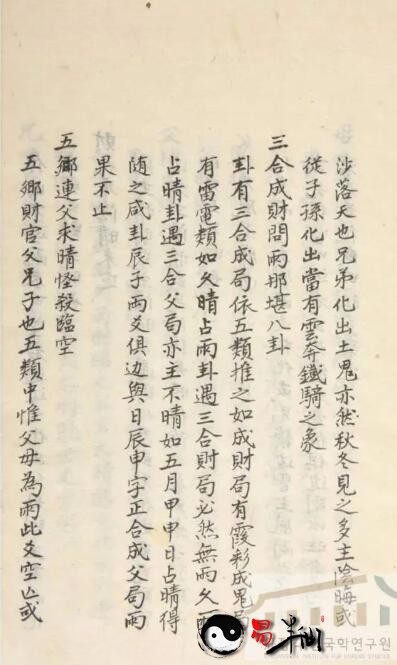 沙落天也兄弟化出土鬼亦然秋冬見之多主陰晦或
從子孫化出當有雲奔鐵騎之象
三合成財問雨那堪入卦
卦有三合成局依五類推之如成財局有霞彩成鬼局
有雷電類如久晴占雨卦遇三合財局必然無雨久雨
占晴卦遇三合父局亦主不晴如五月甲申日占晴得
随之咸卦辰子兩爻俱边與日辰申字正合成父局雨
果不止
五鄉連父求晴怪殺臨空
五鄉財官父兄子也五類中惟父母為雨此爻空亡或
易
国学研究院